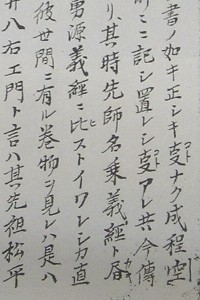 書ノ如キ正シキ㕝ナク成程空
ニ記シ置レシ㕝アレ共今傳
リ、其時先師名乗義經ト
勇源義經ニ比ストイワレシカ直
彼世間ニ有ル巻物ヲ見レハ是ハ
井八右エ門ト言ハ其先祖松平